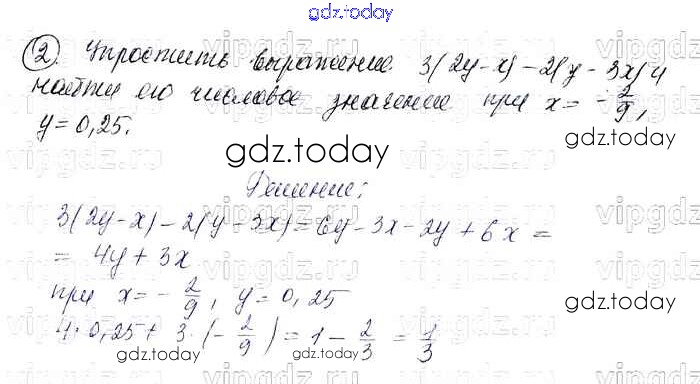 gdz.today
② Упростить выражение 3(2y-x)-2(y-3x) и
найти его числовое значение при x=-2/9,
y=0,25.
gdz.today
gdz.today
Решение:
3(2y-x)-2(y-3x)=6y-3x-2y+6x=
=4y+3x
при x=-2/9, y=0,25
4·0,25+3·(-2/9)=1-2/3=1/3
gdz.today
gdz.today